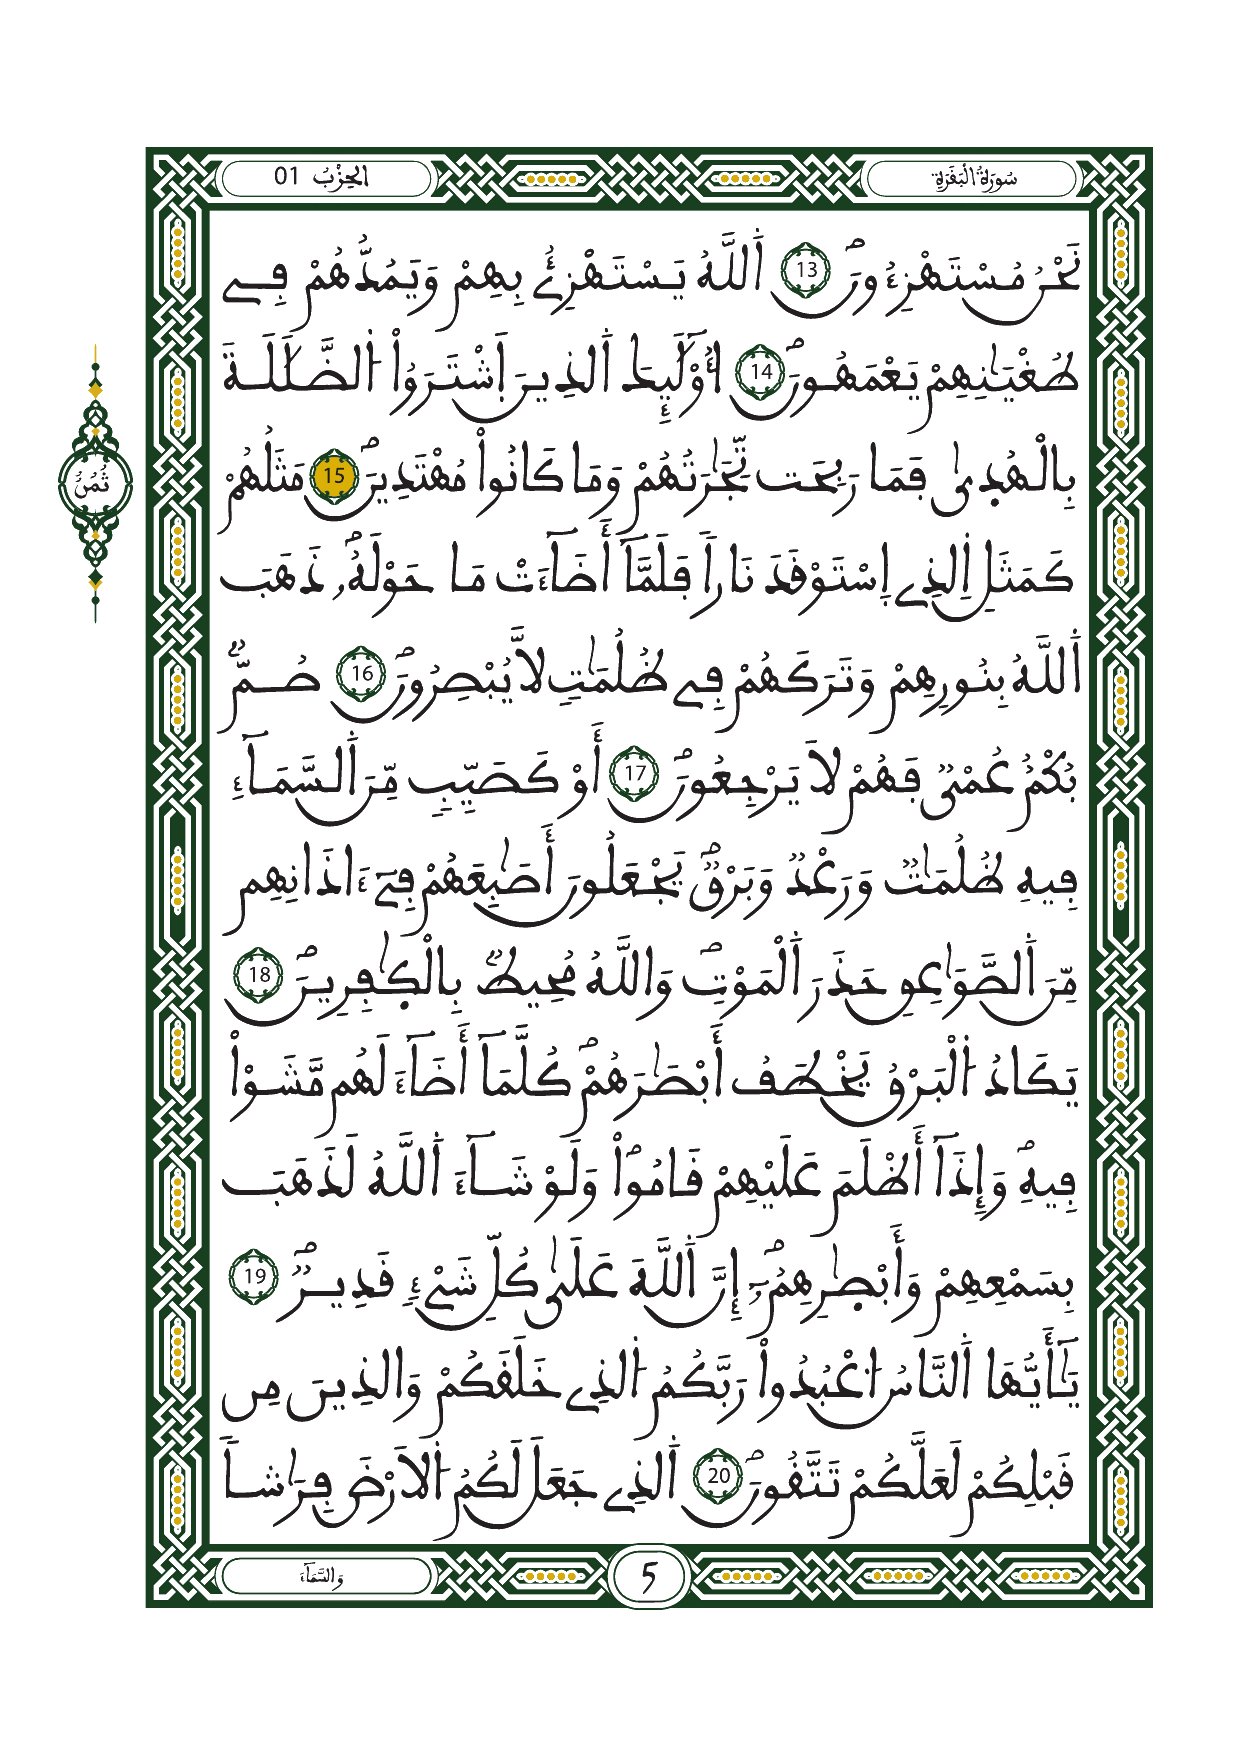 سُورَةُ الْبَقَرَةِ
الْحِزْبُ 01
نَحْنُ مُسْتَهْزِءُونَۖ 13 اَ۬للَّهُ يَسْتَهْزِۓُ بِهِمْ وَيَمُدُّهُمْ فِے
طُغْيَٰنِهِمْ يَعْمَهُونَۖ 14 أُوْلَٰٓئِكَ اَ۬لذِينَ اَ۪شْتَرَوُاْ اُ۬لضَّلَٰلَةَ
بِالْهُد۪يٰ فَمَا رَبِحَت تِّجَٰرَتُهُمْ وَمَا كَانُواْ مُهْتَدِينَۖ 15 مَثَلُهُمْ
ثُمُنُ
كَمَثَلِ اِ۬لذِے اِ۪سْتَوْقَدَ نَاراٗ فَلَمَّآ أَضَآءَتْ مَا حَوْلَهُۥۖ ذَهَبَ
اَ۬للَّهُ بِنُورِهِمْ وَتَرَكَهُمْ فِے ظُلُمَٰتٖ لَّا يُبْصِرُونَۖ 16 صُمُّۢ
بُكْمٌ عُمْيٞ فَهُمْ لَا يَرْجِعُونَۖ 17 أَوْ كَصَيِّبٖ مِّنَ اَ۬لسَّمَآءِ
فِيهِ ظُلُمَٰتٞ وَرَعْدٞ وَبَرْقٞۖ يَجْعَلُونَ أَصَٰبِعَهُمْ فِےٓ ءَاذَانِهِم
مِّنَ اَ۬لصَّوَٰعِقِ حَذَرَ اَ۬لْمَوْتِۖ وَاللَّهُ مُحِيطُۢ بِالْكٰ۪فِرِينَۖ 18
يَكَادُ اُ۬لْبَرْقُ يَخْطَفُ أَبْصَٰرَهُمْۖ كُلَّمَآ أَضَآءَ لَهُم مَّشَوْاْ
فِيهِۖ وَإِذَآ أَظْلَمَ عَلَيْهِمْ قَامُواْۖ وَلَوْ شَآءَ اَ۬للَّهُ لَذَهَبَ
بِسَمْعِهِمْ وَأَبْصٰ۪رِهِمُۥٓۖ إِنَّ اَ۬للَّهَ عَلَيٰ كُلِّ شَےْءٖ قَدِيرٞۖ 19
يَٰٓأَيُّهَا اَ۬لنَّاسُ اُ۟عْبُدُواْ رَبَّكُمُ اُ۬لذِے خَلَقَكُمْ وَالذِينَ مِن
قَبْلِكُمْ لَعَلَّكُمْ تَتَّقُونَۖ 20 اَ۬لذِے جَعَلَ لَكُمُ اُ۬لَارْضَ فِرَٰشاٗ
وَالسَّمَآءَ
5